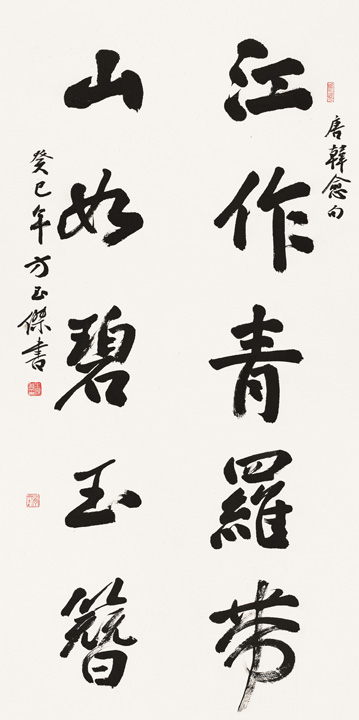 唐韓愈句
江作青羅帶
山如碧玉簪
癸巳年方玉傑書